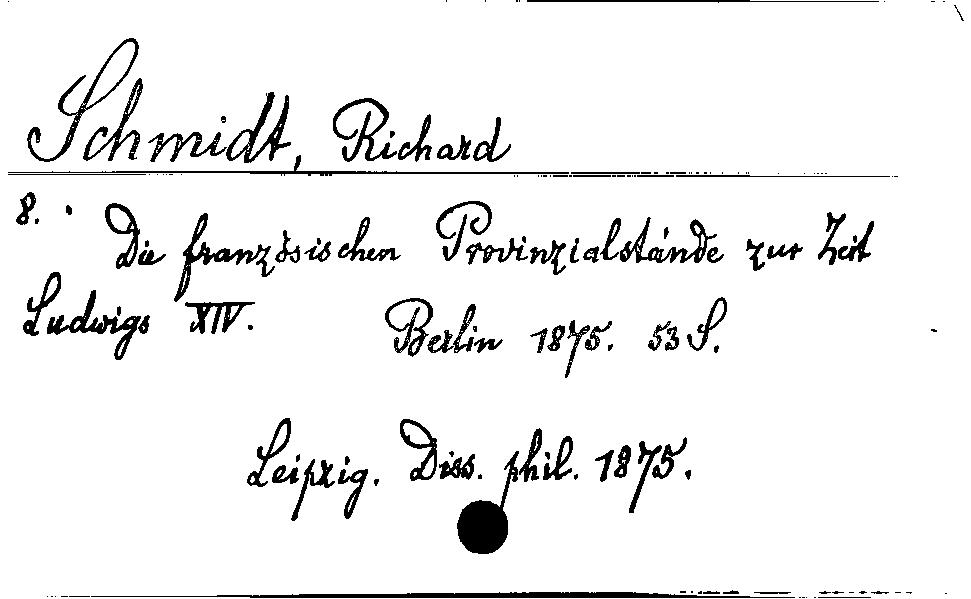 Schmidt, Richard
8. Die französischen Provinzialstände zur Zeit
Ludwigs XIV. Berlin 1875. 53 S.
Leipzig. Diss. phil. 1875.